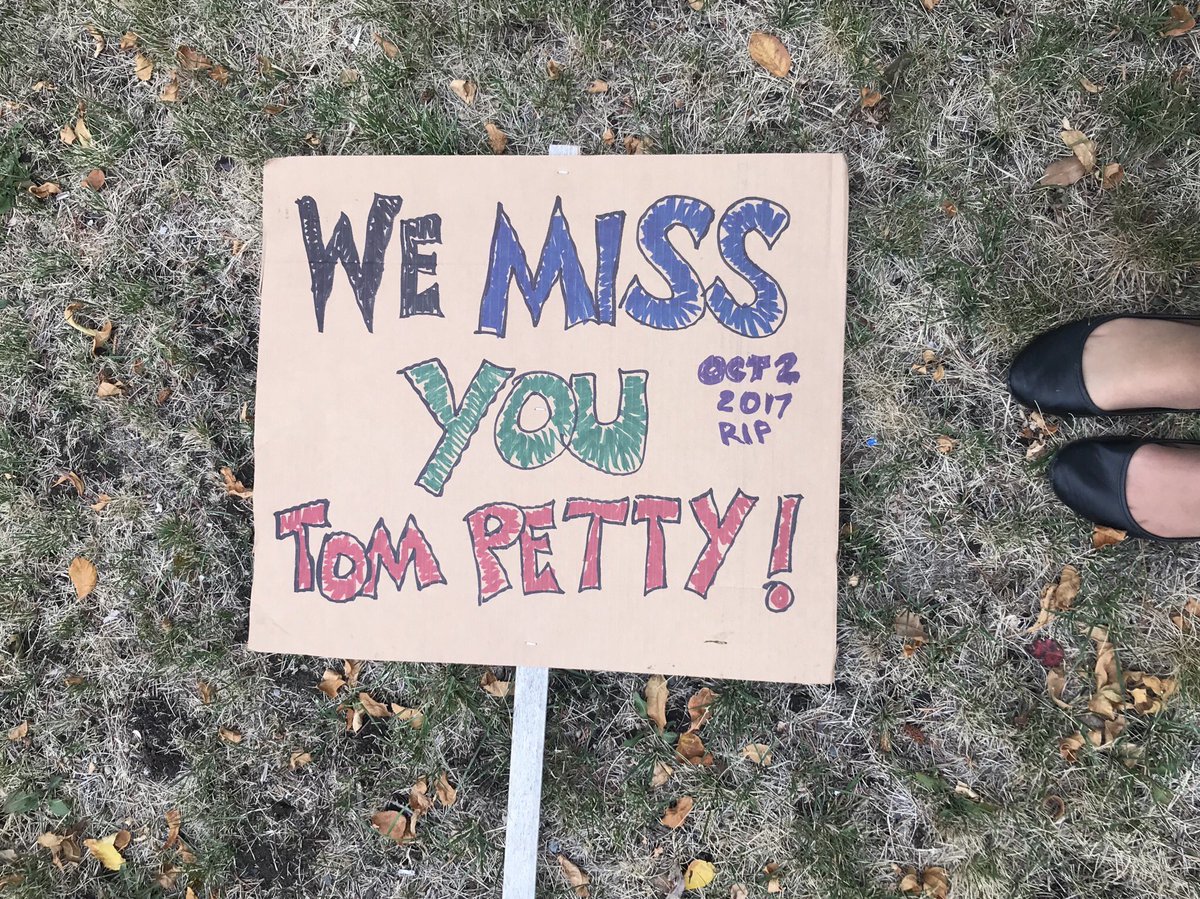 WE MISS
YOU
OCT 2
2017
RIP
TOM PETTY!